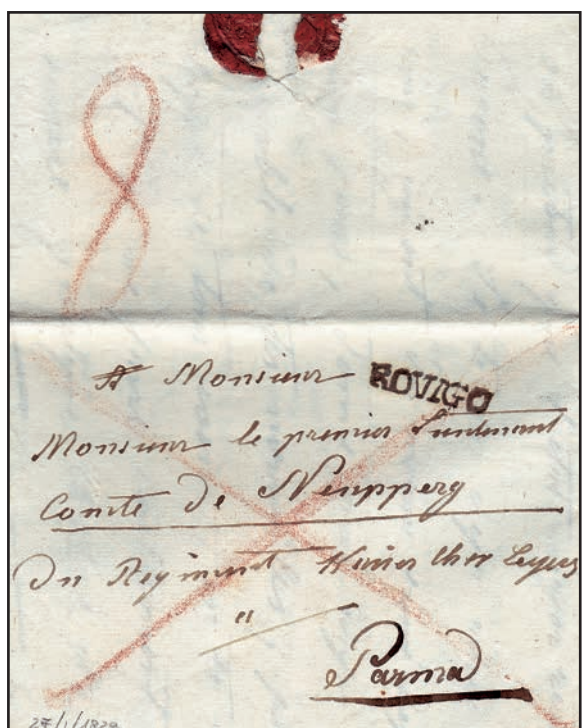 8
A Monsieur ROVIGO
Monsieur le premier Lieutenant
Comte de Neupperg
Du Regiment
"
Parma
27/1/1829